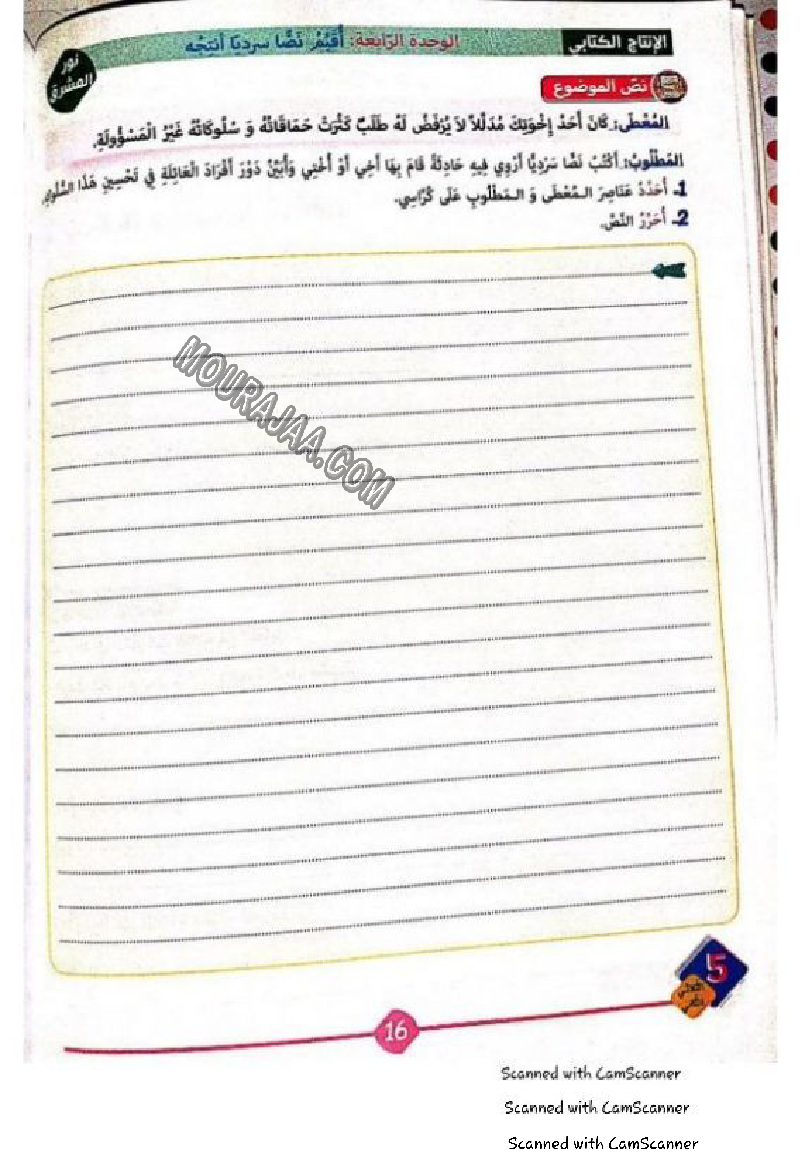 الإنتاج الكتابي
الوحدة الرّابعة: أُقَيِّمُ نَصًّا سرديّا أنتِجُه
نور المشرق
نصّ الموضوع
المُعْطَى: كَانَ أَحَدُ إِخْوَتِكَ مُدَلَّلاً لاَ يُرْفَضُ لَهُ طَلَبٌ كَثُرَتْ حَمَاقَاتُهُ وَ سُلُوكَاتُهُ غَيْرُ الْمَسْؤُولَةِ.
المَطْلُوبُ: أَكْتُبُ نَصًّا سَرْدِيًّا أَرْوِي فِيهِ حَادِثَةً قَامَ بِهَا أَخِي أَوْ أُخْتِي وَأُبَيِّنُ دَوْرَ أَفْرَادِ الْعَائِلَةِ فِي تَحْسِينِ هَذَا السُّلُوكِ.
1ـ أُحَدِّدُ عَنَاصِرَ الـمُعْطَى وَ الـمَطْلُوبِ عَلَى كُرَّاسِي.
2ـ أُحَرِّرُ النَّصَّ.
MOURAJAA.COM
5
16
Scanned with CamScanner
Scanned with CamScanner
Scanned with CamScanner